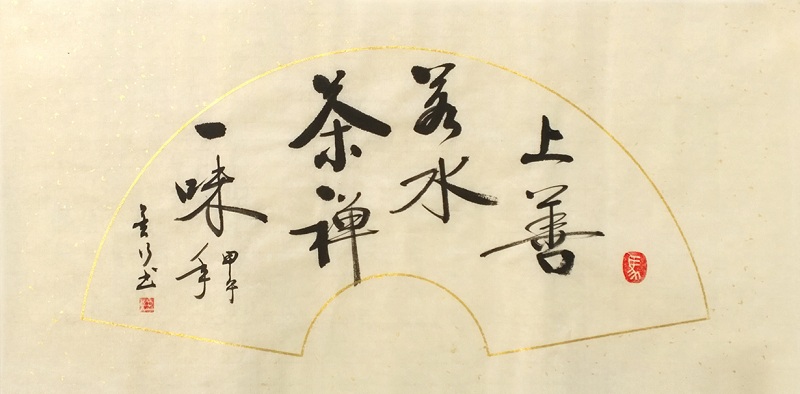 上善
若水
茶禅
一味
甲午
年
书